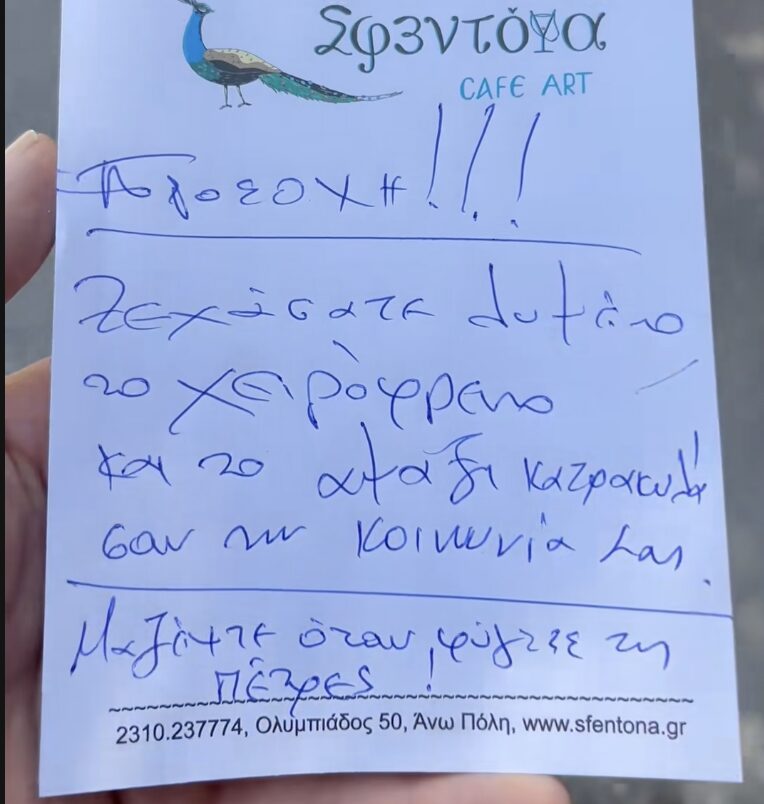 Σφεντόνα
CAFE ART
Προσοχη!!!
Ξεχάσατε λυμένο
το χειρόφρενο
και το αμάξι κατρακυλά!
σαν την κοινωνία μας.
Μαζέψτε όταν φύγετε τις
πέτρες!
2310.237774, Ολυμπιάδος 50, Άνω Πόλη, www.sfentona.gr